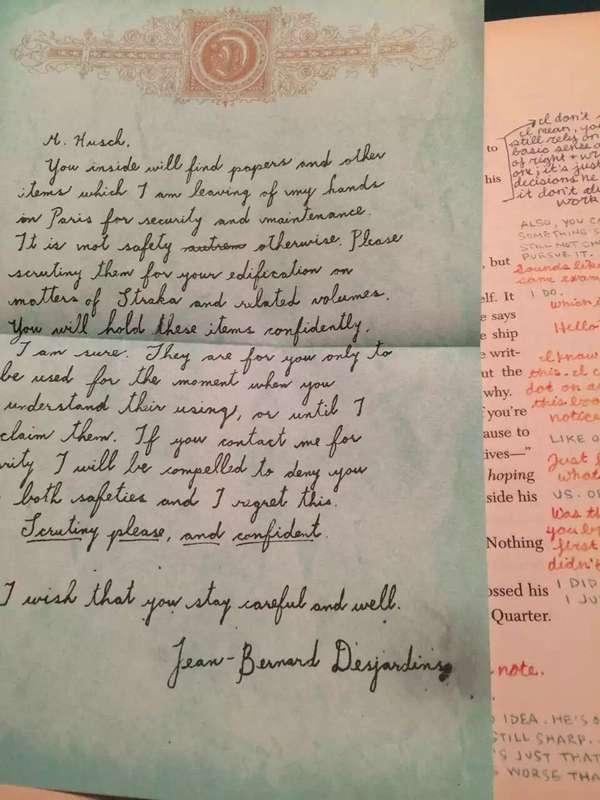 D
M. Husch,
You inside will find papers and other
items which I am leaving of my hands
in Paris for security and maintenance.
It is not safety otherwise. Please
scrutiny them for your edification on
matters of Straka and related volumes.
You will hold these items confidently,
I am sure. They are for you only to
be used for the moment when you
understand their using, or until I
claim them. If you contact me for
I will be compelled to deny you
both safeties and I regret this.
Scrutiny please, and confident.
I wish that you stay careful and well.
Jean-Bernard Desjardins
to
his
but
elf. It
says
ship
writ-
ut the
why.
you're
ause to
ives—"
hoping
side his
Nothing
ossed his
Quarter.
I don't
I mean, you
still rely on
basic sense
of right + wr
it's just
decisions he
it don't
work
ALSO, YOU CA
SOMETHING'S
STILL NOT
PURSUE IT.
Sounds like
same exam
I DO.
which i
Hello
I know
this. I c
dot on a
this boo
notice
LIKE O
Just
what
US. OR
Was th
you
first
didn't
I DID
I JU
note.
IDEA. HE'S
STILL SHARP.
'S JUST THAT
WORSE THA